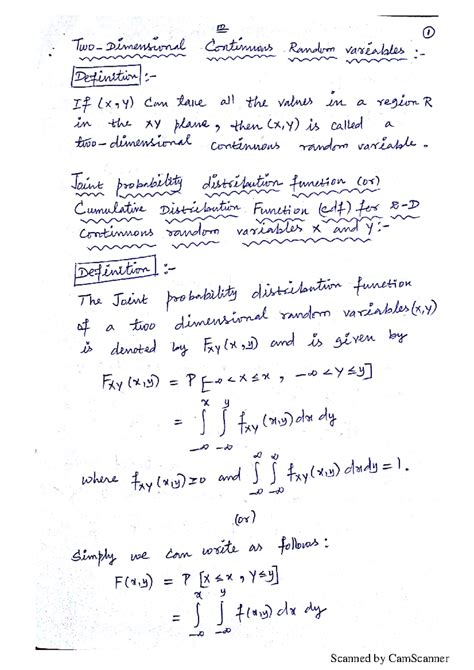 ①
Two-Dimensional Continuous Random variables :-
Definition :-
If (x,y) Can take all the values in a region R
in the xy plane, then (x,y) is called a
two-dimensional continuous random variable.
Joint probability distribution function (or)
Cumulative Distribution Function (cdf) for 2-D
Continuous random variables x and y:-
Definition :-
The Joint probability distribution function
of a two dimensional random variables (x,y)
is denoted by F_XY (x,y) and is given by
F_XY (x,y) = P[-∞<X≤x, -∞<Y≤y]
= ∫_{-∞}^{x} ∫_{-∞}^{y} f_XY (x,y) dx dy
where f_XY (x,y)≥0 and ∫_{-∞}^{∞} ∫_{-∞}^{∞} f_XY (x,y) dxdy = 1.
(or)
Simply we can write as follows:
F(x,y) = P [X≤x, Y≤y]
= ∫_{-∞}^{x} ∫_{-∞}^{y} f(x,y) dx dy
Scanned by CamScanner